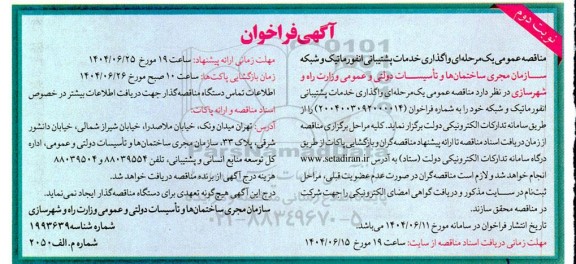 نوبت دوم
آگهی فراخوان
مناقصه عمومی یک مرحله‌ای واگذاری خدمات پشتیبانی انفورماتیک و شبکه
سازمان مجری ساختمان‌ها و تأسیسات دولتی و عمومی وزارت راه و
شهرسازی در نظر دارد مناقصه عمومی یک مرحله‌ای واگذاری خدمات پشتیبانی
انفورماتیک و شبکه خود را به شماره فراخوان (۲۰۰۴۰۰۳۰۹۲۰۰۰۰۱۴) را از
طریق سامانه تدارکات الکترونیکی دولت برگزار نماید. کلیه مراحل برگزاری مناقصه
از زمان دریافت اسناد مناقصه تا ارائه پیشنهاد مناقصه‌گران و بازگشایی پاکات‌ها از طریق
درگاه سامانه تدارکات الکترونیکی دولت (ستاد) به آدرس www.setadiran.ir
انجام خواهد شد و لازم است مناقصه‌گران در صورت عدم عضویت قبلی، مراحل
ثبت‌نام در سایت مذکور و دریافت گواهی امضای الکترونیکی را جهت شرکت
در مناقصه محقق سازند.
تاریخ انتشار فراخوان در سامانه مورخ ۱۴۰۴/۰۶/۱۱ می‌باشد.
مهلت زمانی دریافت اسناد مناقصه از سایت: ساعت ۱۹ مورخ ۱۴۰۴/۰۶/۱۵
مهلت زمانی ارائه پیشنهاد: ساعت ۱۹ مورخ ۱۴۰۴/۰۶/۲۵
زمان بازگشایی پاکت‌ها: ساعت ۱۰ صبح مورخ ۱۴۰۴/۰۶/۲۶
اطلاعات تماس دستگاه مناقصه‌گذار جهت دریافت اطلاعات بیشتر در خصوص
اسناد مناقصه و ارائه پاکات:
آدرس: تهران میدان ونک، خیابان ملاصدرا، خیابان شیراز شمالی، خیابان دانشور
شرقی، پلاک ۳۳، سازمان مجری ساختمان‌ها و تأسیسات دولتی و عمومی، اداره
کل توسعه منابع انسانی و پشتیبانی، تلفن ۸۸۰۳۹۵۵۴ و ۸۸۰۳۹۵۰۴
هزینه درج آگهی از برنده مناقصه دریافت خواهد شد.
درج این آگهی هیچ‌گونه تعهدی برای دستگاه مناقصه‌گذار ایجاد نمی‌نماید.
سازمان مجری ساختمان‌ها و تأسیسات دولتی و عمومی وزارت راه و شهرسازی
شماره شناسه ۱۹۹۳۶۳۹
شماره م.الف ۲۰۵۰
۰۲۱-۸۸۳۴۹۶۷۰-۵